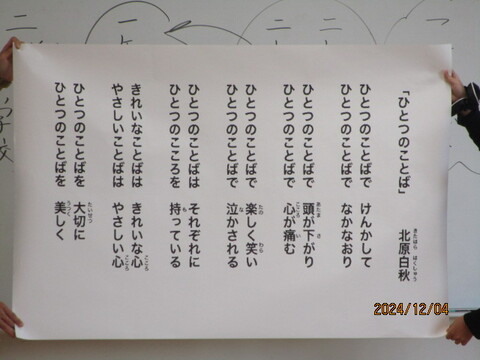 「ひとつのことば」
北原白秋
ひとつのことばで けんかして
ひとつのことばで なかなおり
ひとつのことばで 頭が下がり
ひとつのことばで 心が痛む
ひとつのことばで 楽しく笑い
ひとつのことばで 泣かされる
ひとつのことばは それぞれに
ひとつのこころを 持っている
きれいなことばは きれいな心
やさしいことばは やさしい心
ひとつのことばを 大切に
ひとつのことばを 美しく
2024/12/04